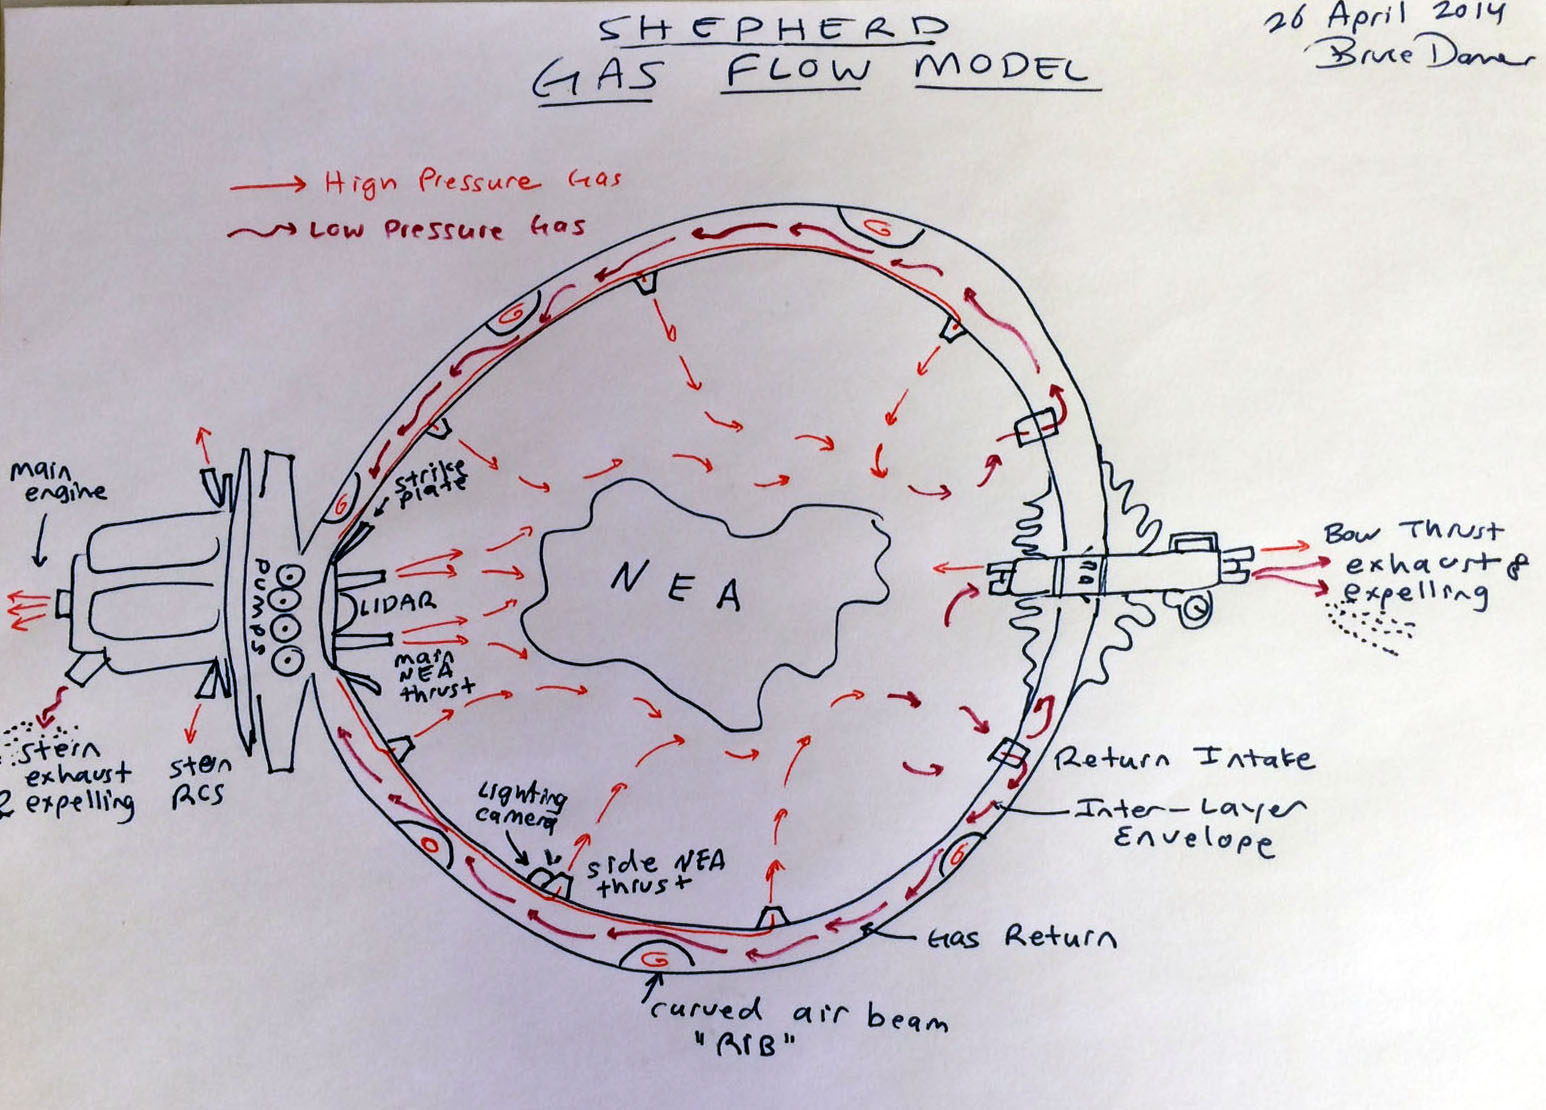 SHEPHERD
GAS FLOW MODEL
26 April 2014
Bruce Damer
High Pressure Gas
Low Pressure Gas
G
G
G
main
engine
strike
plate
PUMPS
LIDAR
main
NEA
thrust
NEA
Bow Thrust
exhaust &
expelling
stern
exhaust
& expelling
stern
RCS
Lighting
camera
side NEA
thrust
Return Intake
Inter-Layer
Envelope
G
G
Gas Return
curved air beam
"RIB"